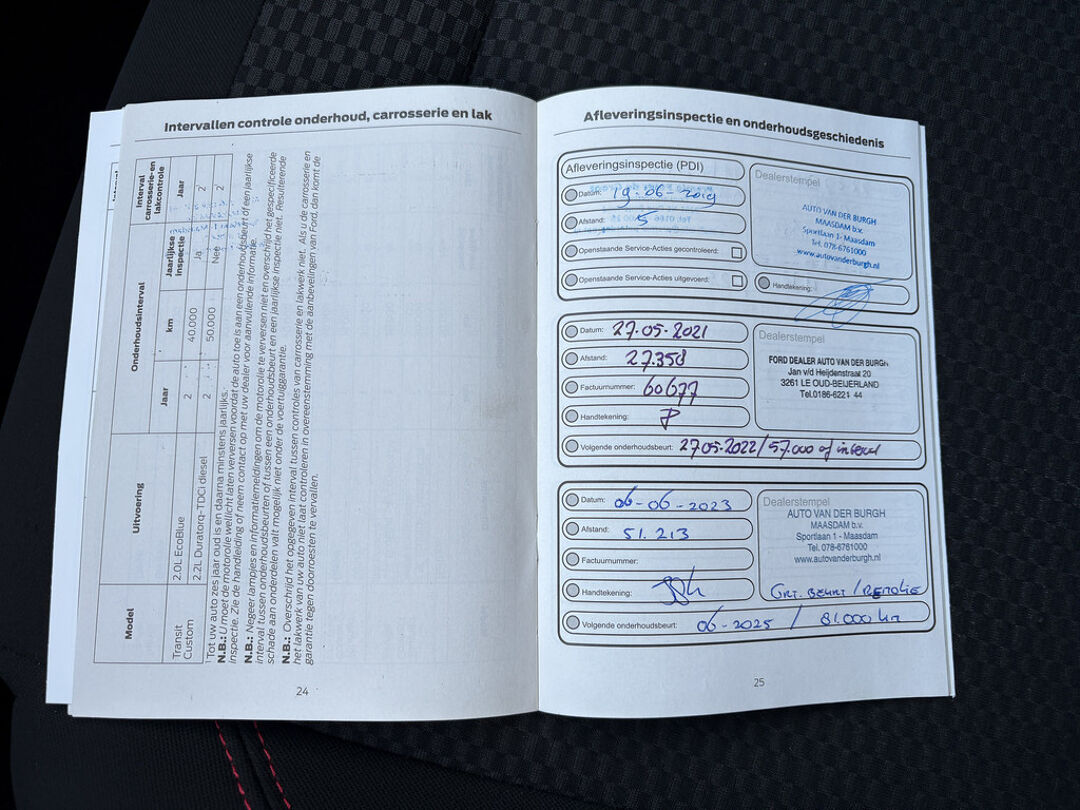 Intervallen controle onderhoud, carrosserie en lak
Model
Uitvoering
Onderhoudsinterval
Interval carrosserie- en lakcontrole
Jaar
km
Jaarlijkse inspectie
Jaar
Transit Custom
2.0L EcoBlue
2
40.000
Ja
2
2.2L Duratorq-TDCi diesel
2
50.000
Nee
2
Tot uw auto zes jaar oud is en daarna minstens jaarlijks.
N.B.: U moet de motorolie wellicht laten verversen voordat de auto toe is aan een onderhoudsbeurt of een jaarlijkse
inspectie. Zie de handleiding of neem contact op met uw dealer voor aanvullende informatie.
N.B.: Negeer lampjes en informatiemeldingen om de motorolie te verversen niet en overschrijd het gespecificeerde
interval tussen onderhoudsbeurten of tussen een onderhoudsbeurt en een jaarlijkse inspectie niet. Resulterende
schade aan onderdelen valt mogelijk niet onder de voertuiggarantie.
N.B.: Overschrijd het opgegeven interval tussen controles van carrosserie en lakwerk niet. Als u de carrosserie en
het lakwerk van uw auto niet laat controleren in overeenstemming met de aanbevelingen van Ford, dan komt de
garantie tegen doorroesten te vervallen.
24
Afleveringsinspectie en onderhoudsgeschiedenis
Afleveringsinspectie (PDI)
Datum: 19-06-2019
Afstand: 5
Openstaande Service-Acties gecontroleerd:
Openstaande Service-Acties uitgevoerd:
Dealerstempel
AUTO VAN DER BURGH
MAASDAM b.v.
Sportlaan 1 - Maasdam
Tel. 078-6761000
www.autovanderburgh.nl
Handtekening:
Datum: 27-05-2021
Afstand: 27.358
Factuurnummer: 60677
Handtekening:
Dealerstempel
FORD DEALER AUTO VAN DER BURGH
Jan v/d Heijdenstraat 20
3261 LE OUD-BEIJERLAND
Tel.0186-6221 44
Volgende onderhoudsbeurt: 27-05-2022 / 57.000 of
Datum: 06-06-2023
Afstand: 51.213
Factuurnummer:
Handtekening:
Dealerstempel
AUTO VAN DER BURGH
MAASDAM b.v.
Sportlaan 1 - Maasdam
Tel. 078-6761000
www.autovanderburgh.nl
GRT. BEURT / REMOLIE
Volgende onderhoudsbeurt: 06-2025 / 81.000 km
25